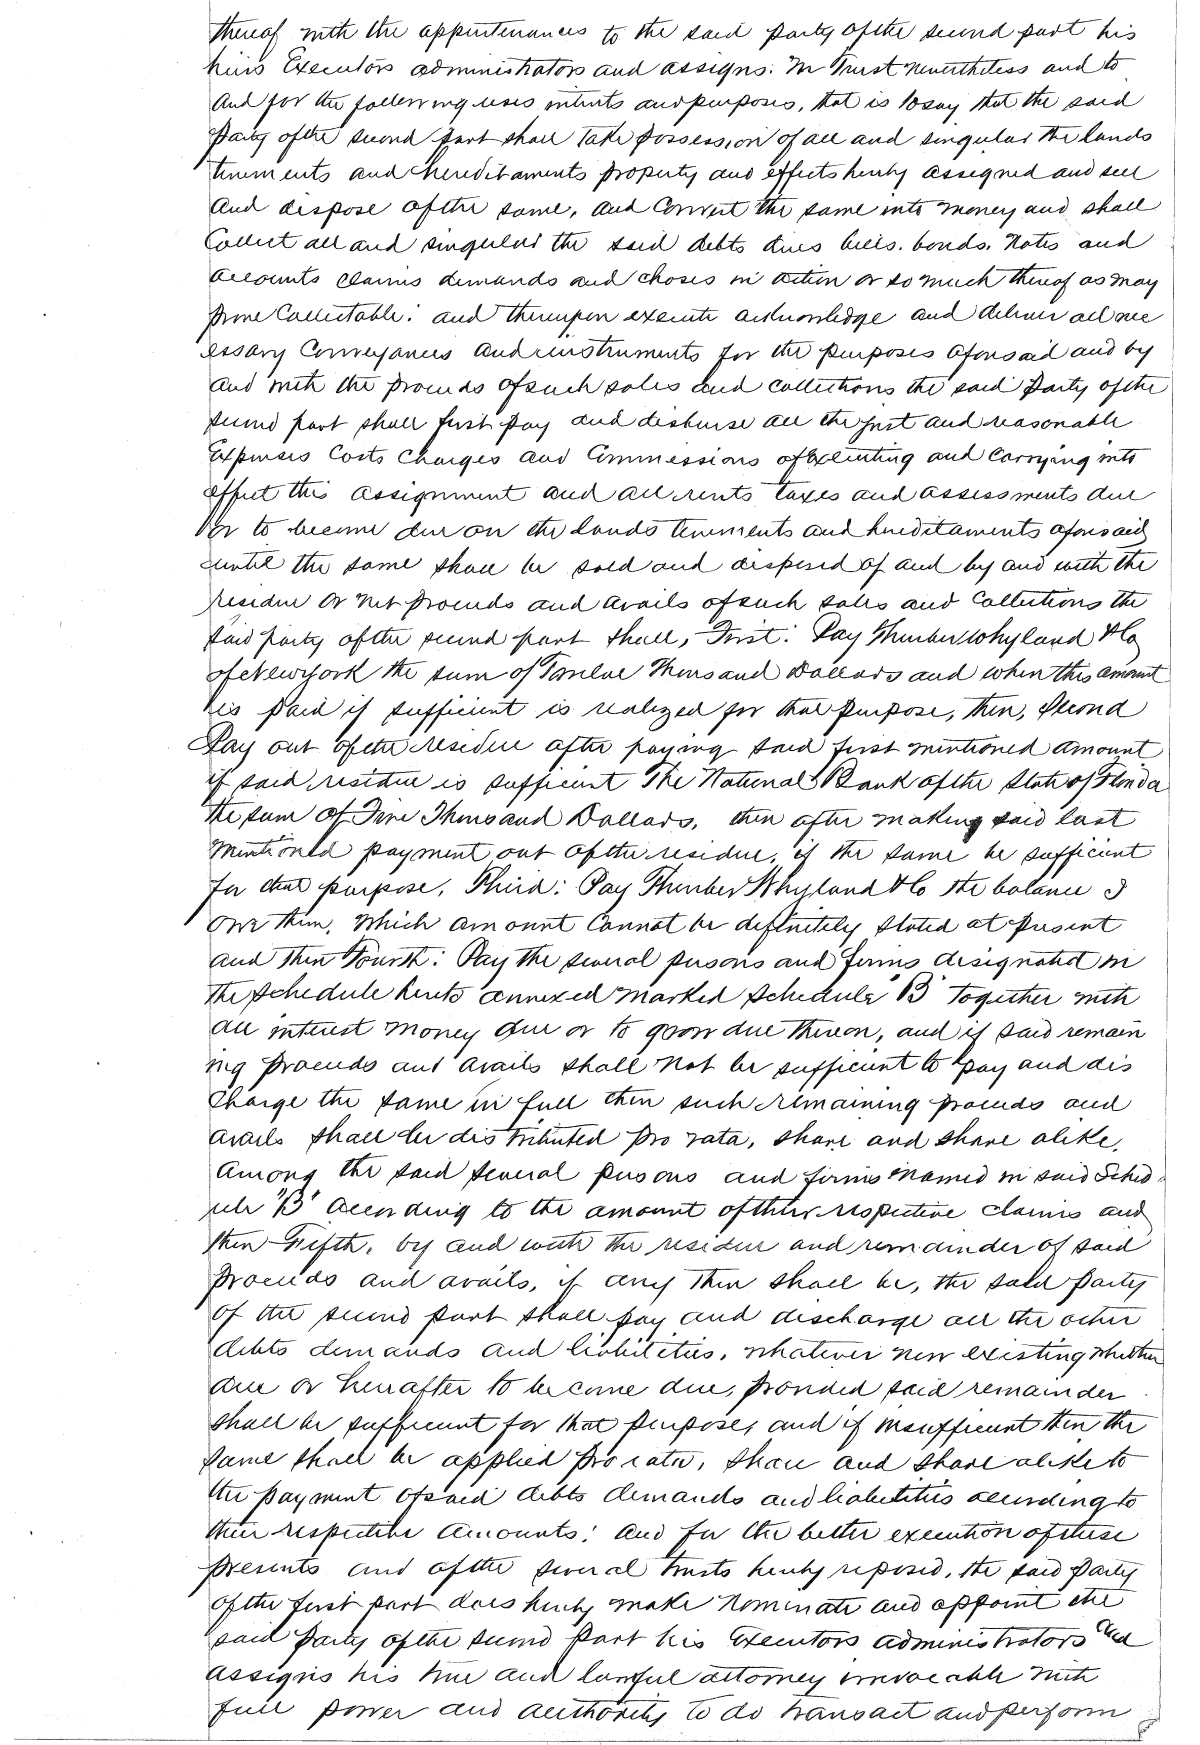 thereof with the appurtenances to the said party of the second part his
heirs Executors administrators and assigns. In Trust nevertheless and to
and for the following uses intents and purposes, that is to say that the said
party of the second part shall take possession of all and singular the lands
tenements and hereditaments property and effects hereby assigned and sell
and dispose of the same, and convert the same into money and shall
Collect all and singular the said debts dues bills. bonds. notes and
accounts claims demands and choses in action or so much thereof as may
prove Collectable: and thereupon execute acknowledge and deliver all nec
essary Conveyances and instruments for the purposes aforesaid and by
and with the proceeds of such sales and collections the said party of the
second part shall first pay and disburse all the just and reasonable
Expenses Costs Charges and Commissions of Executing and Carrying into
effect this assignment and all rents taxes and assessments due
or to become due on the lands tenements and hereditaments aforesaid
until the same shall be sold and disposed of and by and with the
residue or net proceeds and avails of such sales and Collections the
said party of the second part shall, First: Pay Thurber Whyland & Co
of New York the sum of Twelve Thousand Dollars and when this amount
is paid if sufficient is realized for that purpose, then, Second
Pay out of the residue after paying said first mentioned amount
if said residue is sufficient The National Bank of the State of Florida
the sum of Five Thousand Dollars, then after making said last
mentioned payment out of the residue, if the same be sufficient
for that purpose, Third: Pay Thurber Whyland & Co the balance I
owe them, which amount Cannot be definitely stated at present
and then Fourth: Pay the several persons and firms designated in
the schedule hereto annexed marked Schedule "B" together with
all interest money due or to grow due thereon, and if said remain
ing proceeds and avails shall not be sufficient to pay and dis
charge the same in full then such remaining proceeds and
avails shall be distributed pro rata, share and share alike,
among the said several persons and firms named in said Sched-
ule "B" according to the amount of their respective claims and
then Fifth, by and with the residue and remainder of said
proceeds and avails, if any then shall be, the said party
of the second part shall pay and discharge all the other
debts demands and liabilities, whatever now existing whether
due or hereafter to become due, provided said remainder
shall be sufficient for that purpose, and if insufficient then the
same shall be applied pro rata, share and share alike to
the payment of said debts demands and liabilities according to
their respective amounts: and for the better execution of these
presents and of the several trusts hereby reposed, the said party
of the first part does hereby make nominate and appoint the
said party of the second part his Executors administrators and
assigns his true and lawful attorney irrevocable with
full power and authority to do transact and perform